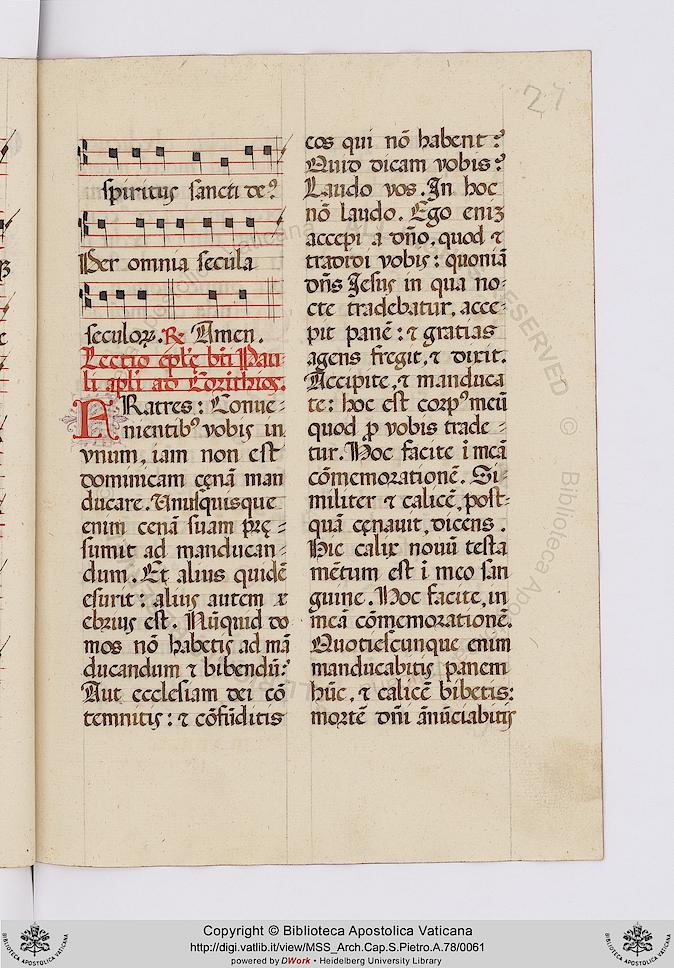 27
spiritus sancti deꝰ
Per omnia secula
seculoꝝ. ℞ Amen.
Lectio epl̃e bt̃i Pau-
li apl̃i ad Corithios.
FRatres: Conue-
nientibꝰ vobis in
vnum, iam non est
dominicam cęnã man
ducare. Unusquisque
enim cenã suam prę-
sumit ad manducan-
dum. Et alius quidẽ
esurit: alius autem
ebrius est. Nũquid do
mos nõ habetis ad mã
ducandum ⁊ bibendũ?
Aut ecclesiam dei cõ
temnitis: ⁊ cõfũditis
eos qui nõ habent?
Quid dicam vobis?
Laudo vos. In hoc
nõ laudo. Ego enim
accepi a dño. quod ⁊
tradidi vobis: quoniã
dñs Jesus in qua no-
cte tradebatur, acce-
pit panẽ: ⁊ gratias
agens fregit, ⁊ dixit.
Accipite, ⁊ manduca
te: hoc est corpꝰ meũ
quod ꝓ vobis trade-
tur. Hoc facite ĩ meã
cõmemorationẽ. Si-
militer ⁊ calicẽ, post-
quã cęnauit, dicens.
Hic calix nouũ testa
mẽtum est ĩ meo san
guine. Hoc facite, in
meã cõmemorationẽ.
Quotiescunque enim
manducabitis panem
hũc, ⁊ calicẽ bibetis:
mortẽ dñi ãnũciabitis
Copyright © Biblioteca Apostolica Vaticana
http://digi.vatlib.it/view/MSS_Arch.Cap.S.Pietro.A.78/0061
powered by DWork • Heidelberg University Library